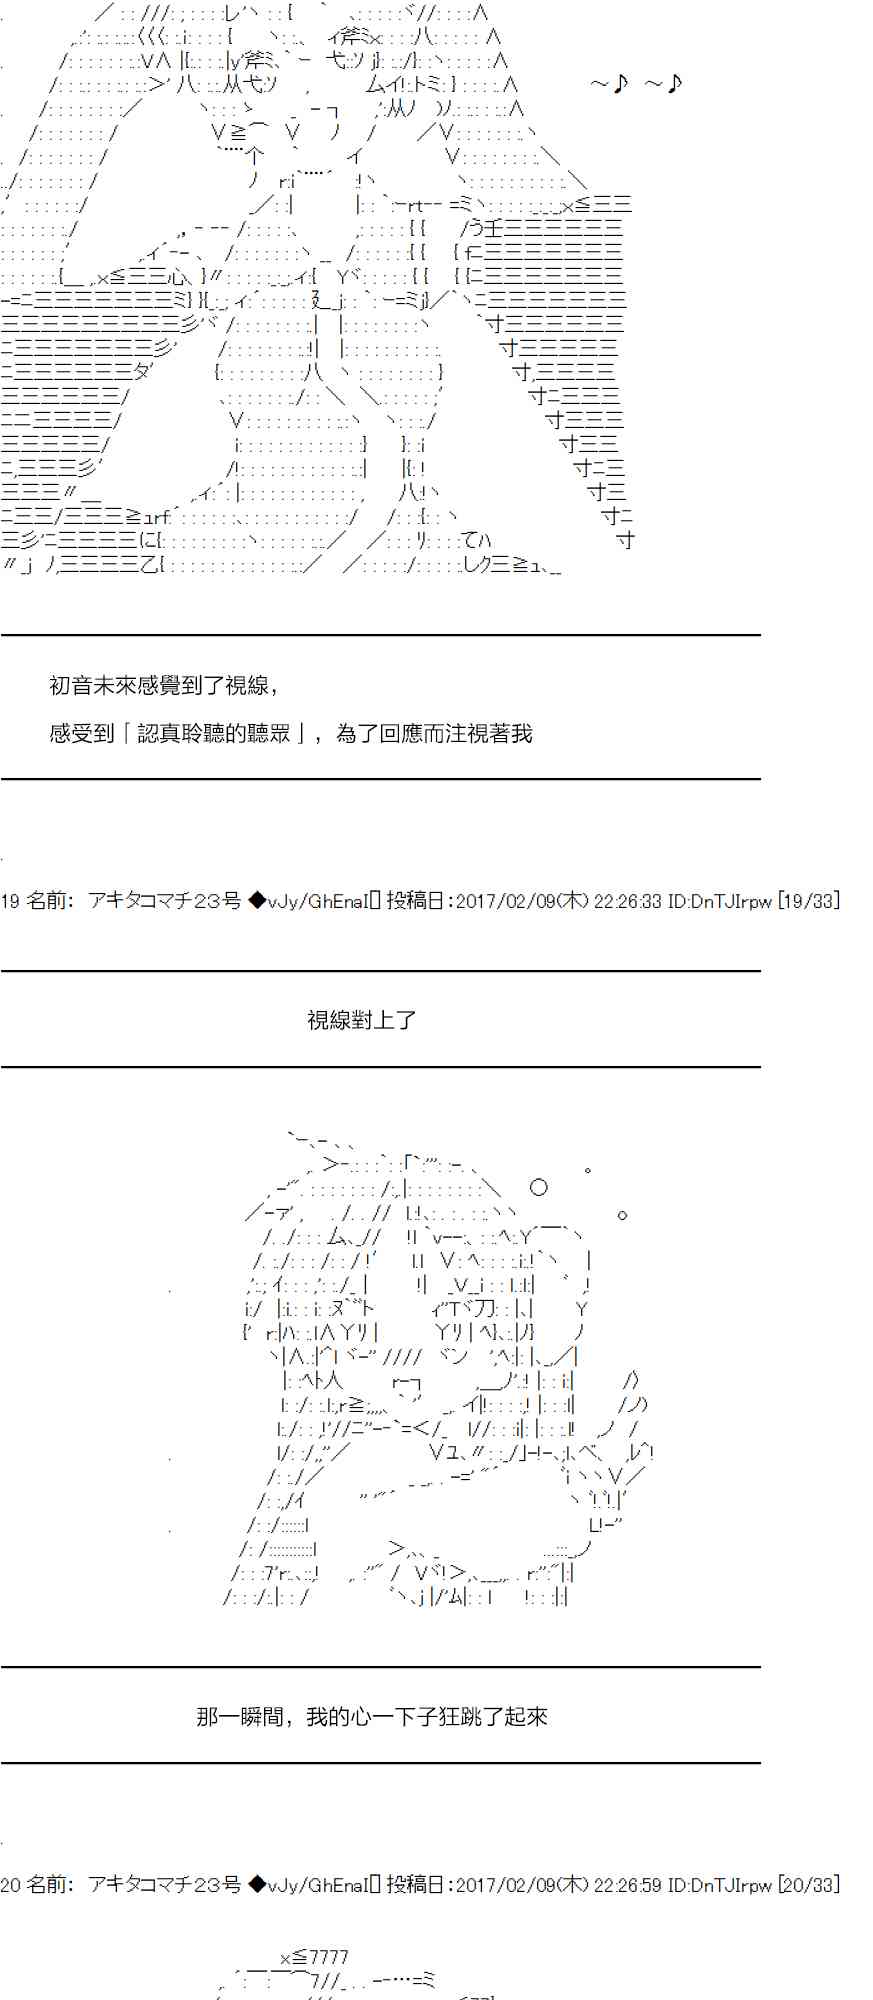 ～♪ ～♪
初音未來感覺到了視線，
感受到「認真聆聽的聽眾」，為了回應而注視著我
19 名前： アキタコマチ２３号 ◆vJy/GhEnaI[] 投稿日：2017/02/09(木) 22:26:33 ID:DnTJIrpw [19/33]
視線對上了
那一瞬間，我的心一下子狂跳了起來
20 名前： アキタコマチ２３号 ◆vJy/GhEnaI[] 投稿日：2017/02/09(木) 22:26:59 ID:DnTJIrpw [20/33]